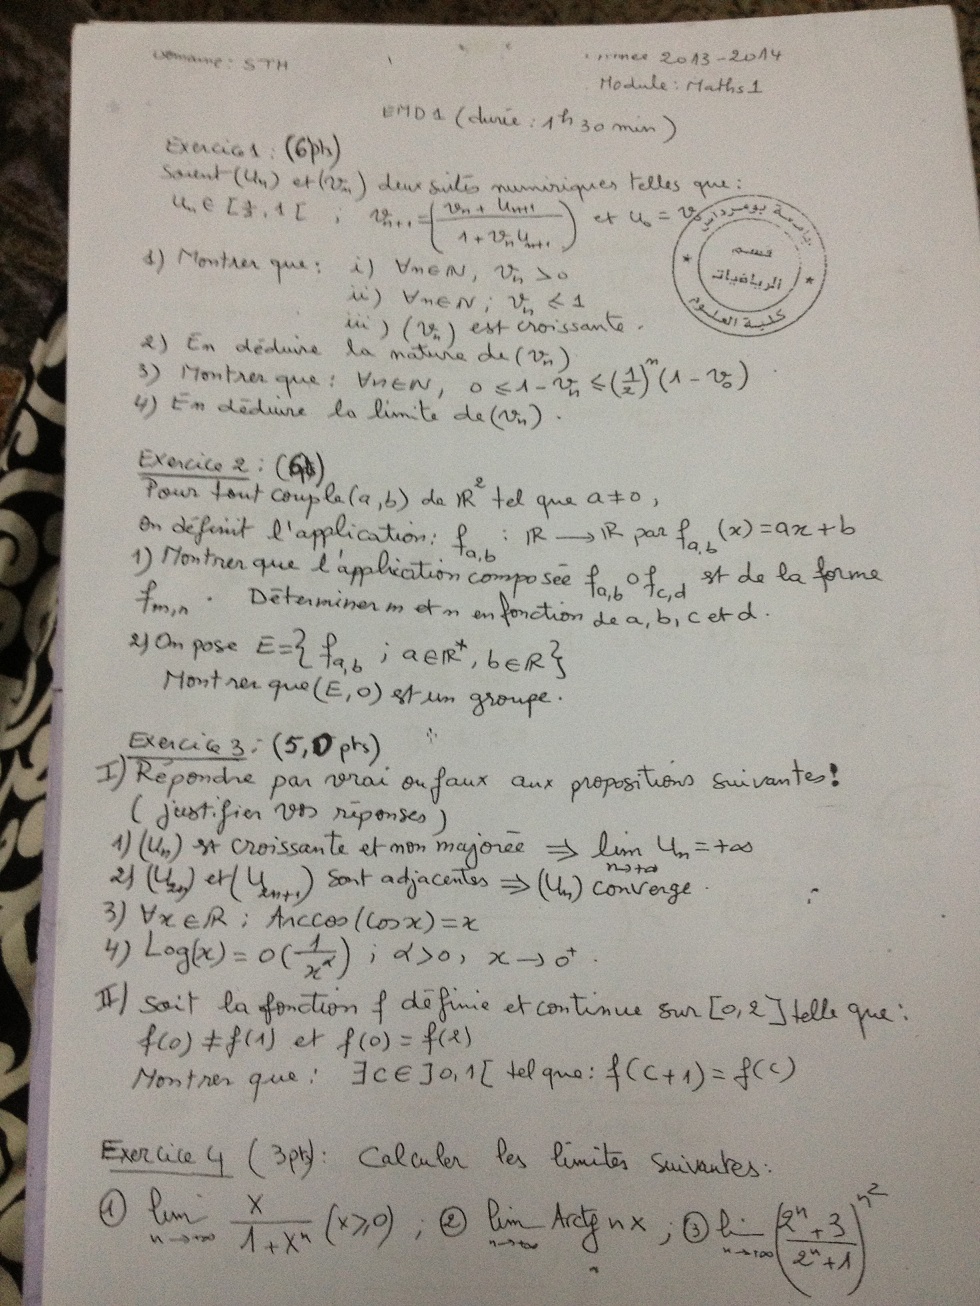 Domaine: STM
Année 2013-2014
Module: Maths1
EMD1 (durée: 1h30min)
Exercice1: (6pts)
Soient (Un) et (Vn) deux suites numériques telles que:
Un ∈ [1/2, 1[ ; Vn+1 = ((Vn + Un+1)/(1 + VnUn+1)) et U0 = V0
جامعة بومرداس
قسم
الرياضيات
كلية العلوم
1) Montrer que: i) ∀n∈N, Vn > 0
ii) ∀n∈N; Vn ≤ 1
iii) (Vn) est croissante.
2) En déduire la nature de (Vn)
3) Montrer que: ∀n∈N, 0 ≤ 1 - Vn ≤ (1/2)^n (1 - V0)
4) En déduire la limite de (Vn).
Exercice 2: (6pts)
Pour tout couple (a,b) de R² tel que a≠0,
On définit l'application: fa,b : R → R par fa,b(x) = ax + b
1) Montrer que l'application composée fa,b o fc,d est de la forme
fm,n. Déterminer m et n en fonction de a, b, c et d.
2) On pose E = { fa,b ; a∈R*, b∈R }
Montrer que (E, o) est un groupe.
Exercice 3: (5,0 pts)
I) Répondre par vrai ou faux aux propositions suivantes!
(justifier vos réponses)
1) (Un) est croissante et non majorée ⇒ lim n→+∞ Un = +∞
2) (U2n) et (U2n+1) sont adjacentes ⇒ (Un) converge.
3) ∀x∈R ; Arccos(cosx) = x
4) Log(x) = o(1/x^α) ; α>0, x → 0+.
II) Soit la fonction f définie et continue sur [0,2] telle que:
f(0) ≠ f(1) et f(0) = f(2)
Montrer que: ∃c∈]0,1[ tel que: f(c+1) = f(c)
Exercice 4 (3pts): Calculer les limites suivantes:
① lim n→+∞ x/(1+x^n) (x≥0) ; ② lim n→+∞ Arctg nx ; ③ lim n→+∞ ((2^n+3)/(2^n+1))^n²